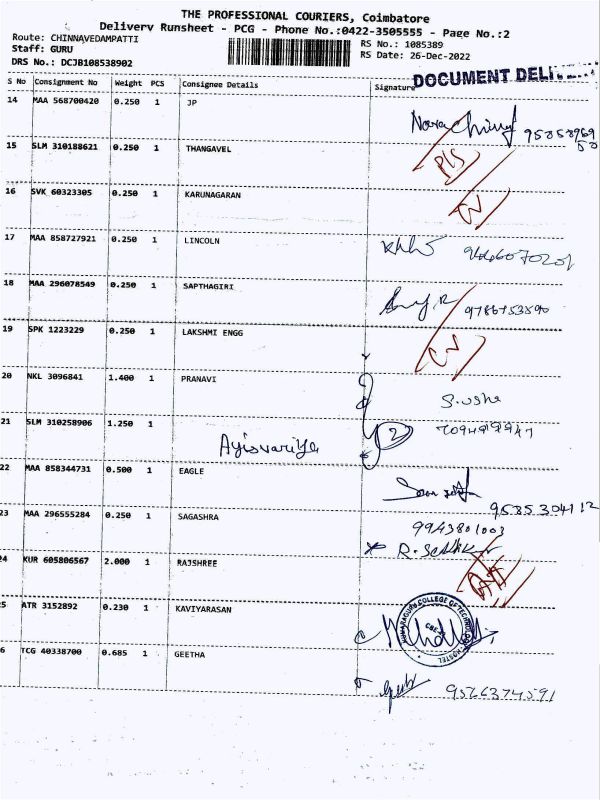 THE PROFESSIONAL COURIERS, Coimbatore
Delivery Runsheet - PCG - Phone No.:0422-3505555 - Page No.:2
Route: CHINNAVEDAMPATTI
RS No.: 1085389
Staff: GURU
RS Date: 26-Dec-2022
DRS No.: DCJB108538902
DOCUMENT
S No Consignment No Weight PCS Consignee Details Signature
14 MAA 568700420 0.250 1 JP
15 SLM 310188621 0.250 1 THANGAVEL
16 SVK 60323305 0.250 1 KARUNAGARAN
17 MAA 858727921 0.250 1 LINCOLN
18 MAA 296078549 0.250 1 SAPTHAGIRI
19 SPK 1223229 0.250 1 LAKSHMI ENGG
20 NKL 3096841 1.400 1 PRANAVI
S.usha
21 SLM 310258906 1.250 1
2
22 MAA 858344731 0.500 1 EAGLE
9585304112
23 MAA 296555284 0.250 1 SAGASHRA
9943801003
24 KUR 605806567 2.000 1 RAJSHREE
25 ATR 3152892 0.230 1 KAVIYARASAN
6 TCG 40338700 0.685 1 GEETHA